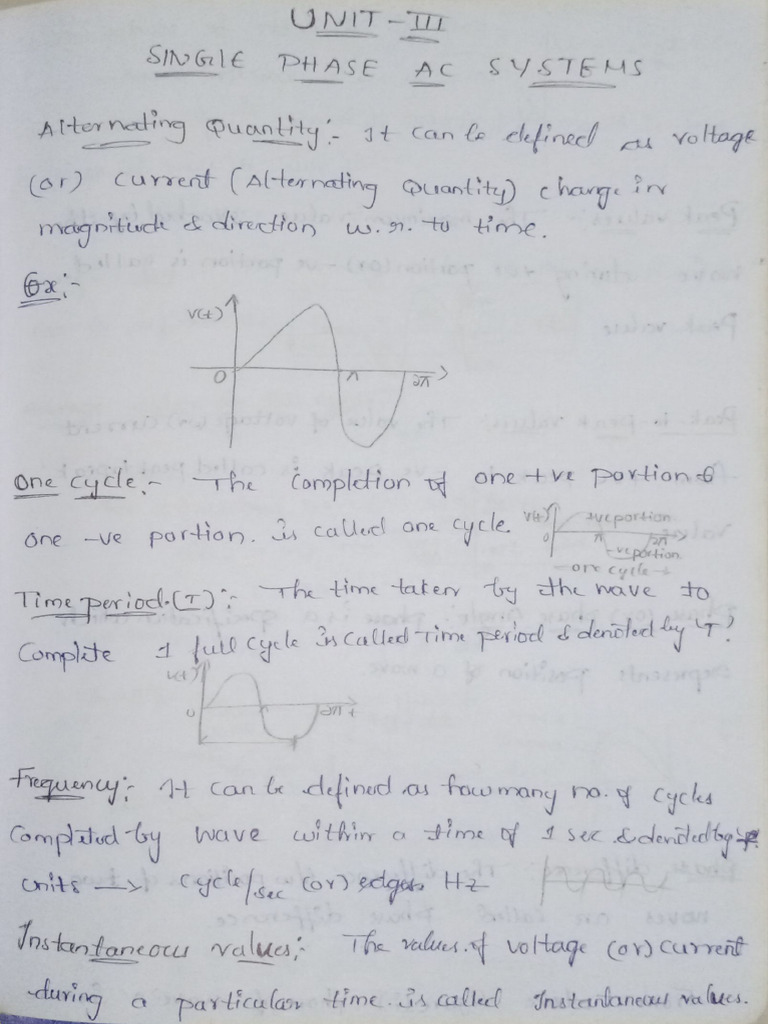 UNIT-III
SINGLE PHASE AC SYSTEMS
Alternating Quantity:- It can be defined as voltage
(or) current (Alternating Quantity) change in
magnitude & direction w.r. to time.
Ex:-
V(t)
0 π 2π
One cycle:- The completion of one +ve portion &
one -ve portion. is called one cycle.
V(t) +ve portion
0 π 2π
-ve portion
one cycle
Time period.(T):- The time taken by the wave to
Complete 1 full cycle is called Time period & denoted by 'T'
V(t)
0 2π t
Frequency:- It can be defined as how many no. of cycles
Completed by wave within a time of 1 sec & denoted by
units → cycle/sec (or) Hz
Instantaneous values:- The values. of voltage (or) current
during a particular time. is called Instantaneous values.